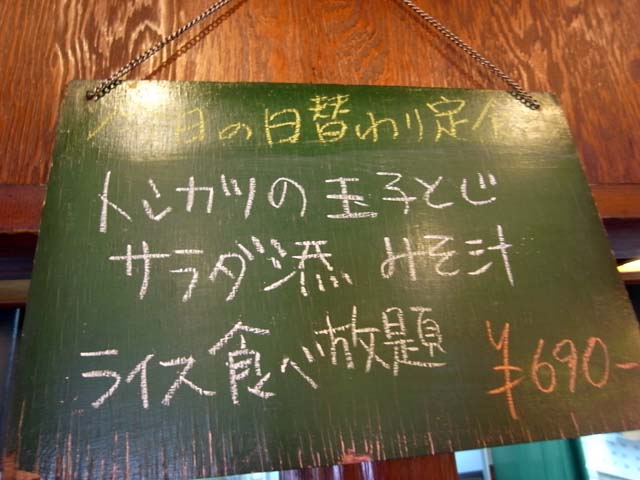 今日の日替わり定食
トンカツの玉子とじ
サラダ添 みそ汁
ライス食べ放題 ¥690-